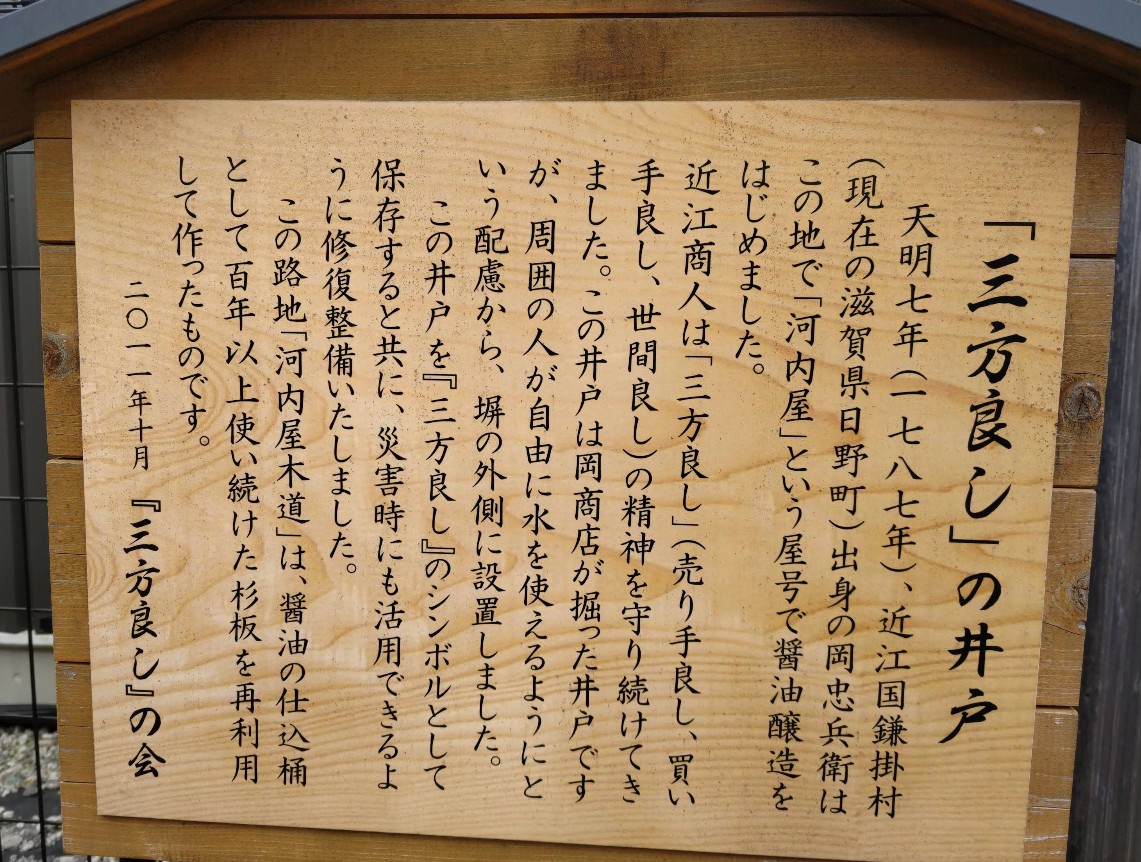 「三方良し」の井戸
天明七年(一七八七年)、近江国鎌掛村
(現在の滋賀県日野町)出身の岡忠兵衛は
この地で「河内屋」という屋号で醤油醸造を
はじめました。
近江商人は「三方良し」(売り手良し、買い
手良し、世間良し)の精神を守り続けてき
ました。この井戸は岡商店が掘った井戸です
が、周囲の人が自由に水を使えるようにと
いう配慮から、塀の外側に設置しました。
この井戸を『三方良し』のシンボルとして
保存すると共に、災害時にも活用できるよ
うに修復整備いたしました。
この路地「河内屋木道」は、醤油の仕込桶
として百年以上使い続けた杉板を再利用
して作ったものです。
二〇一一年十月 『三方良し』の会